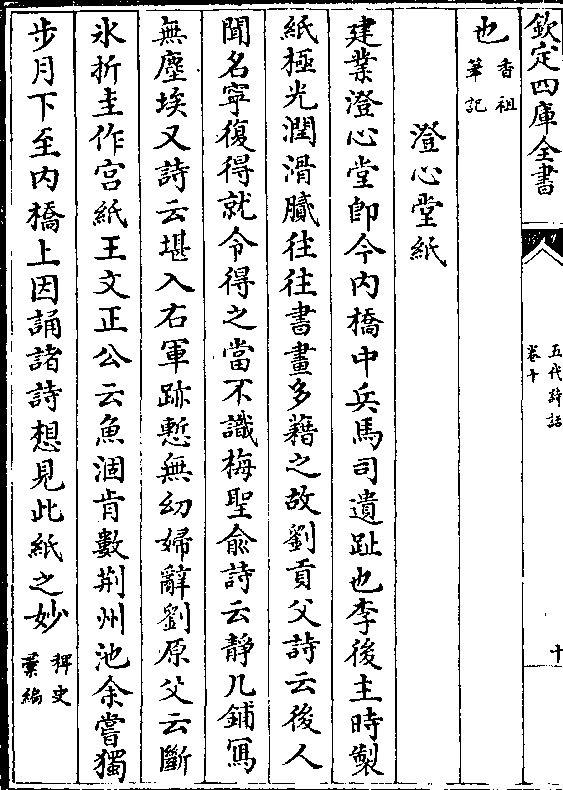 欽定四庫全書
五代詩話
卷十
十
也香祖筆記
澄心堂紙
建業澄心堂即今内橋中兵馬司遺趾也李後主時製
紙極光潤滑膩往往書畫多藉之故劉貢父詩云後人
聞名寧復得就令得之當不識梅聖俞詩云靜几鋪寫
無塵埃又詩云堪入右軍跡慙無幼婦辭劉原父云斷
氷折圭作宫紙王文正公云魚涸肯數荆州池余嘗獨
步月下至内橋上因誦諸詩想見此紙之妙稗史彚編